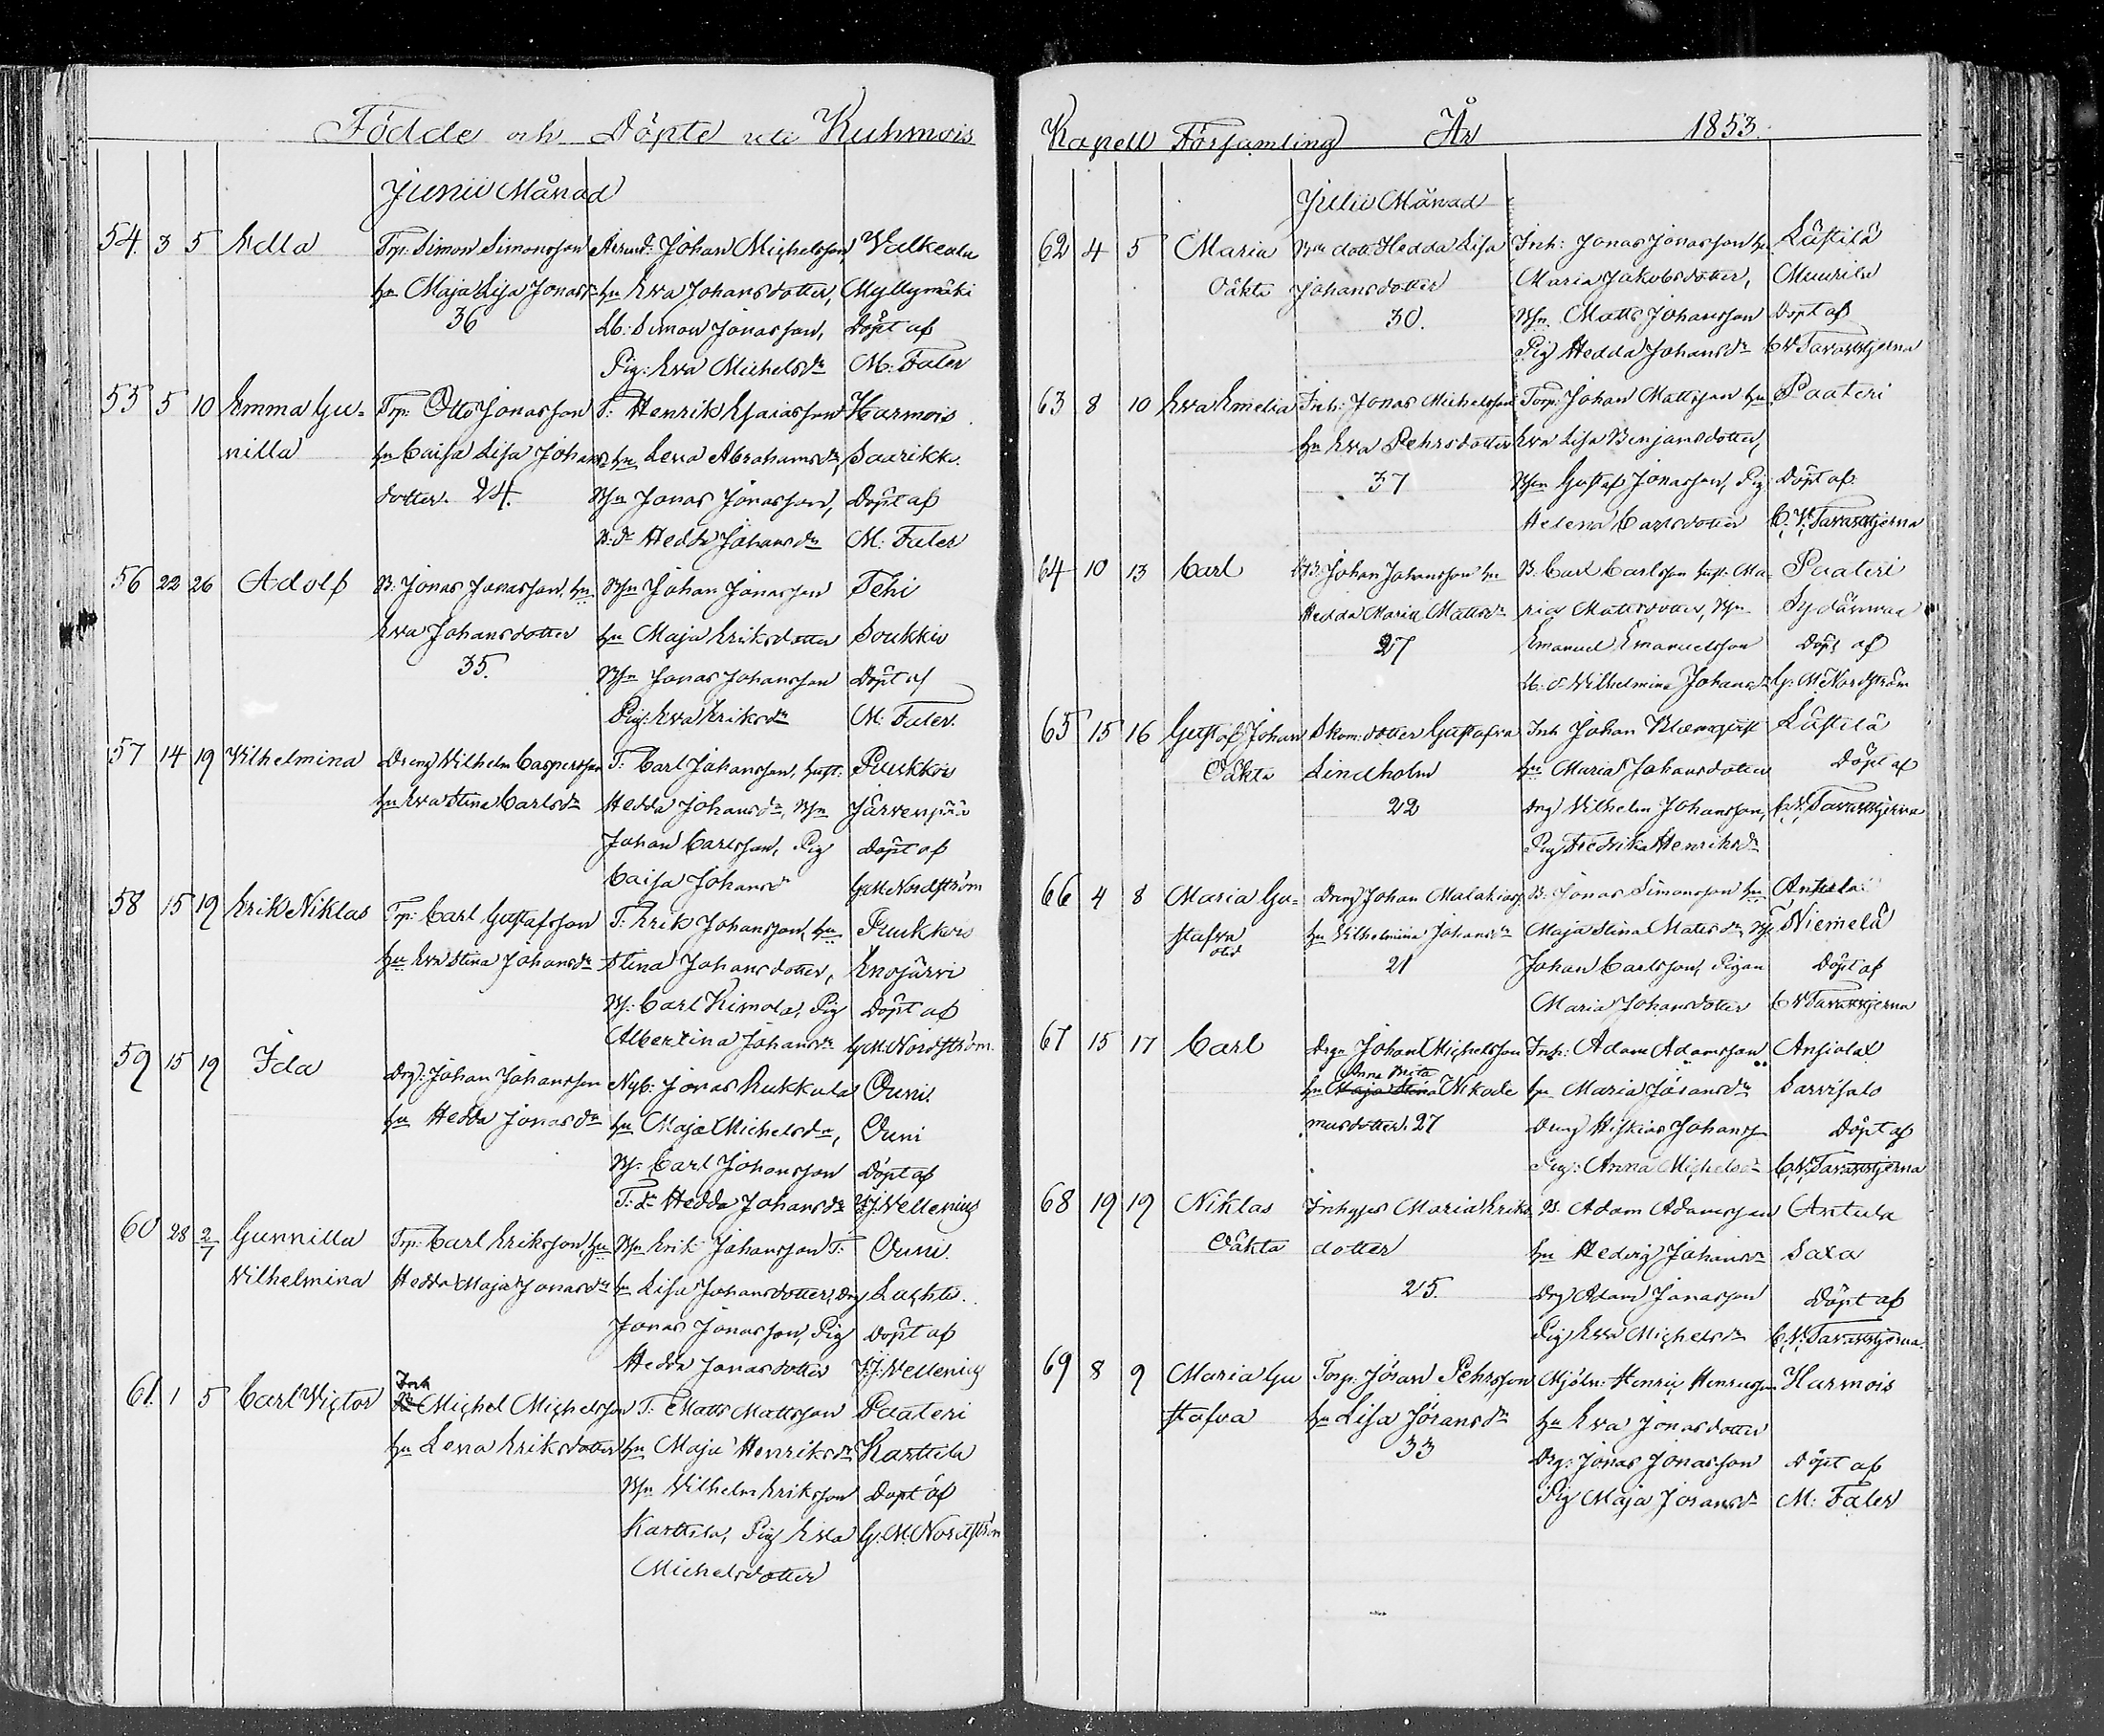 Födde och Döpte uti Kuhmois
Junii Månad
54. 3 5 Edla Trp: Simon Simonsson Johan Michelsson Valkeala
hu Maja Lisa Jonasd hu Eva Johansdotter, Myllymäki
36 Simon Jonasson, Döpt af
Pig: Eva Michelsdr M: Faler
55 5 10 Emma Gu- Trp: Otto Jonasson T: Henrik Esaiasson Harmois
nilla hu Caisa Lisa Johans hu Lena Abrahamsdr Saarikk.
dotter. 24. Jonas Jonasson, Döpt af
B: dr Hedda Johansdr M: Faler
56 22 26 Adolf B: Jonas Jonasson, hu Johan Jonasson Tehi
Eva Johansdotter hu Maja Eriksdotter Soukkio
35. Jonas Johansson Döpt af
Pig: Eva Eriksdr M: Faler.
57 14 19 Vilhelmina Dreng Vilhelm Caspersson T: Carl Johansson, hust: Puukkois
hu Eva Stina Carlsdr Hedda Johansdr, Järvenpää
Johan Carlsson, Pig Döpt af
Caisa Johansdr G M Nordström
58 15 19 Erik Niklas Trp: Carl Gustafsson T: Erik Johansson, hu Puukkois
hu Eva Stina Johansdr Stina Johansdotter, Enojärvi
Carl Kimola, Pig Döpt af
Albertina Johansdr G M Nordström.
59 15 19 Ida Drg: Johan Johansson Nyb: Jonas Rukkala Ouni.
hu Hedda Jonasdr hu Maja Michelsdr, Ouni
Carl Johansson Döpt af
T: dr Hedda Johansdr Wellenius
60 28 2/7 Gunnilla Trp: Carl Eriksson, hu Erik Johansson T: Ouni.
Vilhelmina Hedda Maja Jonasdr hu Lisa Johansdotter, Drg
Jonas Jonasson, Pig Döpt af
Hedda Jonasdotter Wellenius
61. 1 5 Carl Victor Inh Michel Michelsson T: Matts Mattsson Paateri
hu Lena Eriksdotter hu Maja Henriksdr Karttila
Vilhelm Eriksson Döpt af
Karttila, Pig Eva G. M. Nordström
Michelsdotter
Kapell Församling År 1853.
Julii Månad
62 4 5 Maria dott: Hedda Lisa Inh: Jonas Jonasson hu Lästilä
Oäkta Johansdotter Maria Jakobsdotter, Muurila
30. Matts Johansson Döpt af
Pig Hedda Johansdr C V Tavaststjerna
63 8 10 Eva Emelia Inh: Jonas Michelsson Torp: Johan Mattsson hu Paateri
hu Eva Pehrsdotter Eva Lisa Benjamsdotter,
37 Gustaf Jonasson, Pig Döpt af
Helena Carlsdotter C. V. Tavaststjerna
64 10 13 Carl Johan Johansson hu B. Carl Carlsson hust: Ma- Paateri
Hedda Maria Mattsdr ria Mattsdotter, Sydänmaa
27 Emanuel Emanuelsson Döpt af
Vilhelmina Johansdr G: M Nordström
65 15 16 Gustaf Johan Skom: dotter Gustafva Inh Johan Blomqvist Lästilä
Oäkta Lindholm hu Maria Johansdotter Döpt af
22 Drg Vilhelm Johansson, C. V. Tavaststjerna
Pig Fredrika Henriksdr
66 4 8 Maria Gu- Dreng Johan Malakiass B: Jonas Simonsson hu
stafva hu Vilhelmina Johansdr Maja Stina Matsdr, Niemelä
21 Johan Carlsson, Pigan Döpt af
Maria Johansdotter C V Tavaststjerna
67 15 17 Carl Drgn Johan Michelsson Inh: Adam Adamsson Ansiolax
Anna Brita
hu Maja Stina Nikode hu Maria Jöransdr Sarvisalo
musdotter. 27 Dreng Hiskias Johanss Döpt af
Pig: Anna Michelsdr C. V. Tavaststjerna
68 19 19 Niklas Inhyses Maria Eriks B. Adam Adamsson Antula
Oäkta dotter hu Hedvig Johansdr Saxa
25. Drg Adam Jonasson Döpt af
Pig Eva Michelsdr C. V. Tavaststjerna.
69 8 9 Maria Gu Torp: Jöran Pehrsson Mjöln: Henric Henricsson Harmois
stafva hu Lisa Jöransdr hu Eva Jonasdotter
33 Drg: Jonas Jonasson Döpt af
Pig Maja Joransdr M: Faler